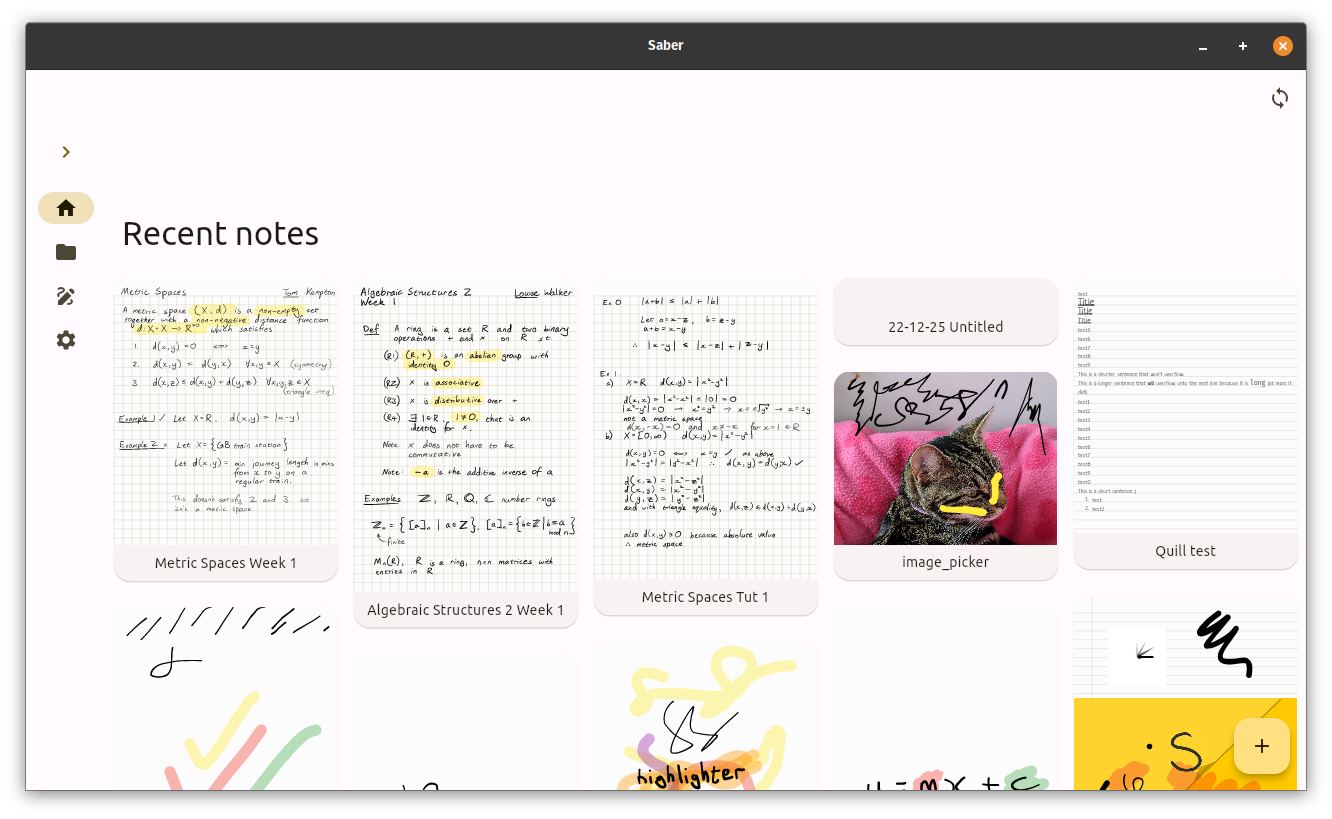 Saber
Recent notes
Metric Spaces Tom Kempton
A metric space (X, d) is a non-empty set
together with a non-negative distance function
d: X × X → R≥0 which satisfies
1. d(x,y) = 0 ⟺ x=y
2. d(x,y) = d(y,x) ∀x,y ∈ X (symmetry)
3. d(x,z) ≤ d(x,y) + d(y,z) ∀x,y,z ∈ X
(triangle ineq)
Example 1 ✓ Let X=R, d(x,y) = |x-y|
Example 2 × Let X = {GB train station}
Let d(x,y) = min journey length in mins
from x to y on a
regular train.
This doesn't satisfy 2 and 3 so
isn't a metric space.
Metric Spaces Week 1
Algebraic Structures 2 Louise Walker
Week 1
Def A ring is a set R and two binary
operations + and × on R st.
(R1) (R, +) is an abelian group with
identity 0.
(R2) × is associative
(R3) × is distributive over +
(R4) ∃ 1∈R, 1≠0, that is an
identity for ×.
Note: × does not have to be
commutative
Note: -a is the additive inverse of a
Examples ℤ, ℝ, ℚ, ℂ number rings
ℤn = { [a]n | a∈ℤ}, [a]n = {b∈ℤ | b≡a mod n}
finite
Mn(R), R is a ring, n×n matrices with
entries in R
Algebraic Structures 2 Week 1
Ex 0 |a+b| ≤ |a| + |b|
Let a = x-z, b = z-y
a+b = x-y
∴ |x-y| ≤ |x-z| + |z-y|
Ex 1
a) X=R d(x,y) = |x²-y²|
d(x,x) = |x²-x²| = |0| = 0
not a metric space
b) X = [0,∞) d(x,y) = |x²-y²|
d(x,y)=0 ⟺ x=y ✓ as above
|x²-y²| = |y²-x²| ∴ d(x,y) = d(y,x) ✓
d(x,z) = |x²-z²|
d(x,y) = |x²-y²|
d(y,z) = |y²-z²|
and with triangle equality, d(x,z) ≤ d(x,y)+d(y,z)
also d(x,y) ≥ 0 because absolute value
∴ metric space
Metric Spaces Tut 1
22-12-25 Untitled
image_picker
test
Title
Title
Title
test5
test6
test7
test8
test9
This is a shorter sentence that won't overflow.
This is a longer sentence that will overflow onto the next line because it is long
test1
test2
test3
test4
test5
test6
test7
test8
test9
test0
This is a short sentence :(
1. test
2. test2
Quill test
highlighter
S